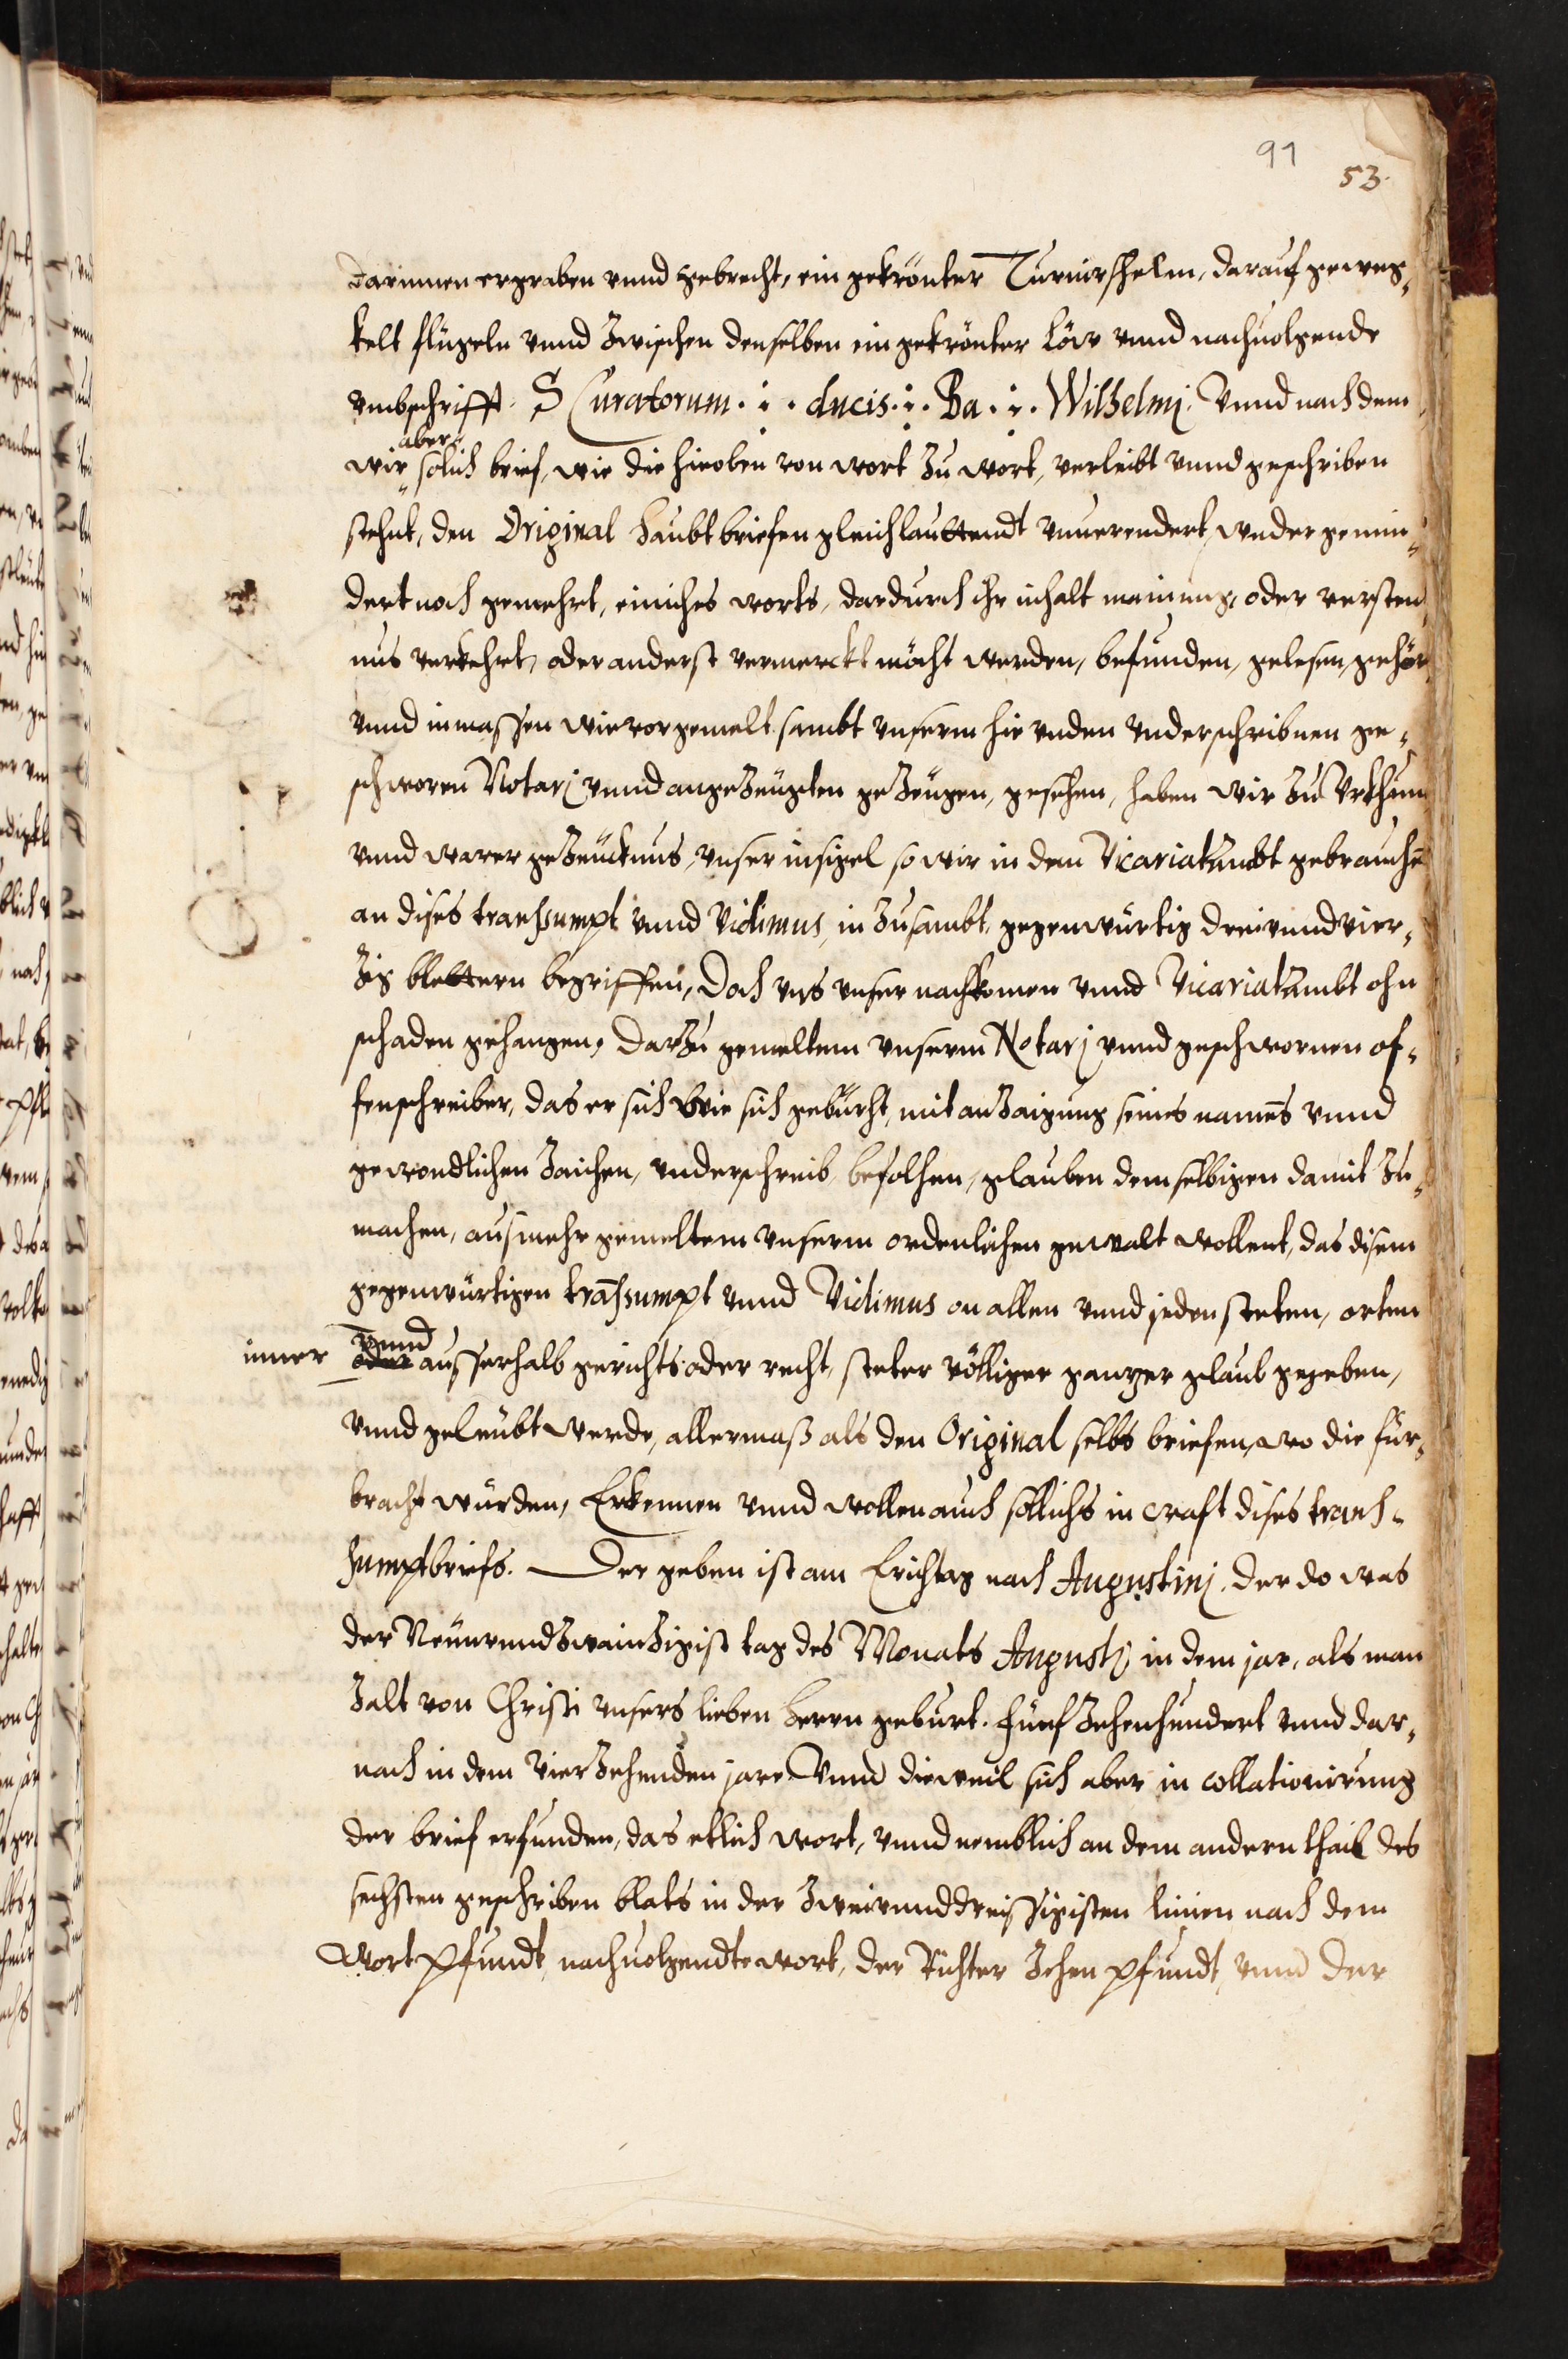 91
53.
darinnen ergraben vnnd gebrecht, ein gekrönter Turnirshelm, darauf geweg-
kelt flügeln vnnd Zwischen denselben ein gekrönter Löw vnnd nachuolgende
vmbschrifft. S Curatorum . i . ducis . i . Ba . i . Wilhelmj. Vnnd nach dem
aber
wir solich brief, wie die hieoben von wort Zu wort, verleibt vnnd geschriben
stehnt, den Original Haubtbriefen gleichlauttendt vnuerendert, weder gemin-
dert noch gemehrt, einiches worts, dardurch ihr inhalt mainung, oder versten
nus verkehrt, oder anderst vermerckt möcht werden, befunden, gelesen, gehör
vnnd inmassen wie vorgemelt sambt vnserm hie vnden vnderschribnen ge-
schworen Notarj vnnd angeZeugten geZeugen, gesehen, haben wir Zu Vrkhun
vnnd warer geZeucknus, vnser insigel so wir in dem Vicariatambt gebrauchē
an dises transsumpt vnnd Vidimus, in Zusambt gegenwürtig dreivnndvier-
Zig blettern begriffen, Doch vns vnser nachkomen vnnd Vicariatambt ohn
schaden gehangen, darZu gemeltem vnserm Notarj vnnd geschwornen of-
fenschreiber, das er sich wie sich gebürht, mit anZaigung seines namēs vnnd
gewondlichen Zaichen, vnderschreib befolhen, glauben demselbigen damit Zu-
machen, aus mehr gemeltem vnserm ordenlichen gewalt wollent, das disem
gegenwürtigen trāssumpt vnnd Vidimus on allen vnnd jeden steten, orten
inner vnnd
oder ausserhalb gerichts oder recht, steter völliger gantzer glaub gegeben,
vnnd geleubt werde, allermaß als den Original selbs briefen, wo die für-
bracht würden, Erkennen vnnd wollen auch sollichs in craft dises trans-
sumptbriefs. Der geben ist am Erichtag nach Augustinj. der do was
der Neunvnndzwainzigist tag des Monats Augustj in dem jar, als man
Zalt von Christi vnsers lieben Herrn geburt. fünfZehenhundert vnnd dar-
nach in dem vierZehenden jare. Vnnd dieweil sich aber in collationirung
der brief erfunden, das etlich wort, vnnd nemblich an dem andern thail des
sechsten geschriben blats in der Zweivnnddreissigisten linien nach dem
wort pfundt, nachuolgendte wort, der Richter Zehen pfundt, vnnd der